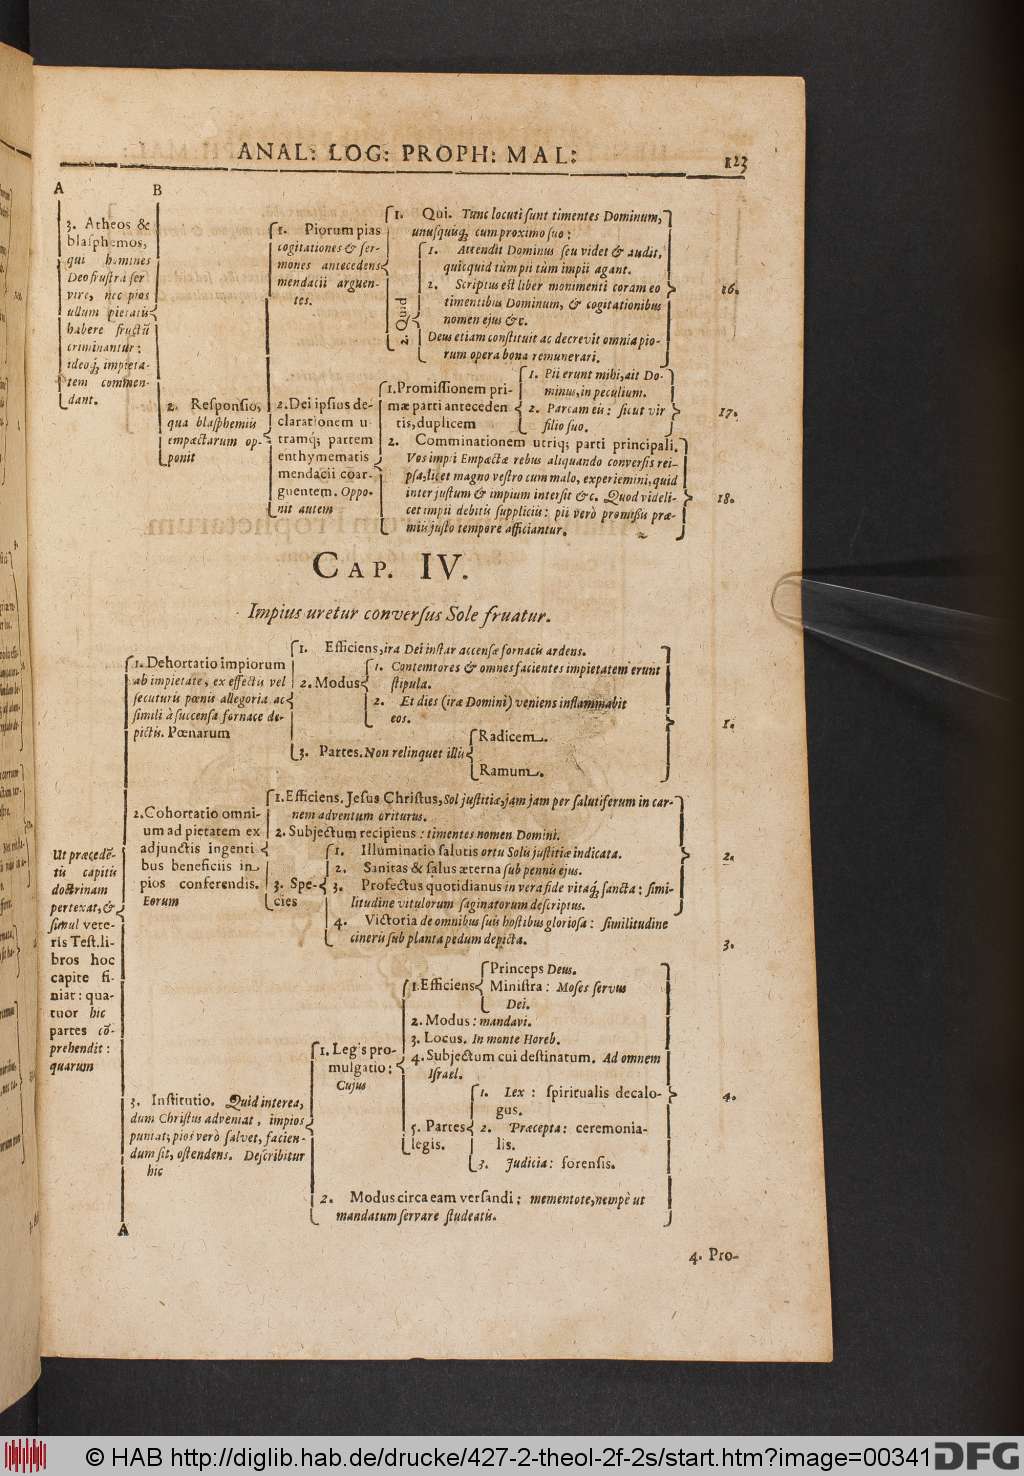 ANAL: LOG: PROPH: MAL:
123
A
B
3. Atheos &
blasphemos,
qui homines
Deo frustra ser
vire, nec pios
ullum pietatis
habere fructũ
criminantur:
ideoq́; impieta-
tem commen-
dant.
2. Responsio,
qua blasphemis
empæctarum op-
ponit
1. Piorum pias
cogitationes & ser-
mones antecedens
mendacii arguen-
tes.
1. Qui. Tunc locuti sunt timentes Dominum,
unusquisq; cum proximo suo:
2. Quid
1. Attendit Dominus seu videt & audit,
quicquid tùm pii tùm impii agant.
2. Scriptus est liber monimenti coram eo
timentibus Dominum, & cogitationibus
nomen ejus &c.
Deus etiam constituit ac decrevit omnia pio-
rum opera bona remunerari.
16.
2. Dei ipsius de-
clarationem u-
tramq́; partem
enthymematis
mendacii coar-
guentem. Oppo-
nit autem
1. Promissionem pri-
mæ parti anteceden
tis, duplicem
1. Pii erunt mihi, ait Do-
minus, in peculium.
2. Parcam eis: sicut vir
filio suo.
17.
2. Comminationem utriq; parti principali.
Vos impii Empæctæ rebus aliquando conversis rei-
psa, licet magno vestro cum malo, experiemini, quid
inter justum & impium intersit &c. Quod videli-
cet impii debitis suppliciis: pii verò promissis præ-
miis justo tempore afficiantur.
18.
CAP. IV.
Impius uretur conversus Sole fruatur.
Ut præcedẽ-
tis capitis
doctrinam
pertexat, &
simul vete-
ris Test. li-
bros hoc
capite fi-
niat: qua-
tuor hic
partes cõ-
prehendit:
quarum
1. Dehortatio impiorum
ab impietate, ex effectu vel
secuturis pœnis allegoria ac
simili à succensa fornace de-
pictis. Pœnarum
1. Efficiens, ira Dei instar accensæ fornacis ardens.
2. Modus
1. Contemtores & omnes facientes impietatem erunt
stipula.
2. Et dies (iræ Domini) veniens inflammabit
eos.
3. Partes. Non relinquet illis
Radicem.
Ramum.
1.
2. Cohortatio omni-
um ad pietatem ex
adjunctis ingenti
bus beneficiis in
pios conferendis.
Eorum
1. Efficiens. Jesus Christus, Sol justitiæ, jam jam per salutiferum in car-
nem adventum oriturus.
2. Subjectum recipiens: timentes nomen Domini.
3. Spe-
cies
1. Illuminatio salutis ortu Solis justitiæ indicata.
2. Sanitas & salus æterna sub pennis ejus.
3. Profectus quotidianus in vera fide vitaq́; sancta: simi-
litudine vitulorum saginatorum descriptus.
4. Victoria de omnibus suis hostibus gloriosa: similitudine
cineris sub planta pedum depicta.
2.
3.
3. Institutio. Quid interea,
dum Christus adveniat, impios
puniat; pios verò salvet, facien-
dum sit, ostendens. Describitur
hic
1. Legis pro-
mulgatio:
Cujus
1. Efficiens
Princeps Deus.
Ministra: Moses servus
Dei.
2. Modus: mandavi.
3. Locus. In monte Horeb.
4. Subjectum cui destinatum. Ad omnem
Israel.
5. Partes
legis.
1. Lex: spiritualis decalo-
gus.
2. Præcepta: ceremonia-
lis.
3. Judicia: forensis.
4.
2. Modus circa eam versandi: mementote, nempè ut
mandatum servare studeatis.
A
4. Pro-
© HAB http://diglib.hab.de/drucke/427-2-theol-2f-2s/start.htm?image=00341
DFG